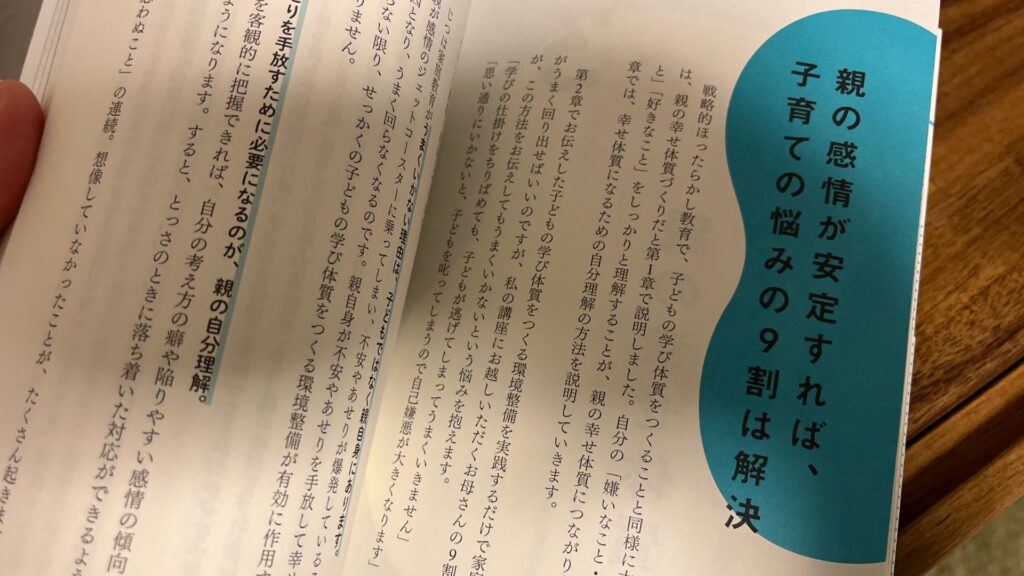 親の感情が安定すれば、
子育ての悩みの9割は解決
戦略的ほったらかし教育で、子どもの学び体質をつくることと同様に
は、親の幸せ体質づくりだと第1章で説明しました。自分の「嫌いなこと・
と」「好きなこと」をしっかりと理解することが、親の幸せ体質につながり
章では、幸せ体質になるための自分理解の方法を説明していきます。
第2章でお伝えした子どもの学び体質をつくる環境整備を実践するだけで家庭
がうまく回り出せばいいのですが、私の講座にお越しいただくお母さんの9割
が、この方法をお伝えしてもうまくいかないという悩みを抱えます。
「学びの仕掛けをちりばめても、子どもが逃げてしまってうまくいきません」
「思い通りにいかないと、子どもを叱ってしまうので自己嫌悪が大きくなります」
うまくいかない理由は、子どもではなく親自身にあります。
感情のジェットコースターに乗ってしまい、不安やあせりが爆発している
となり、うまく回らなくなるのです。親自身が不安やあせりを手放して幸せ
らない限り、せっかくの子どもの学び体質をつくる環境整備が有効に作用す
りません。
りを手放すために必要になるのが、親の自分理解。
を客観的に把握できれば、自分の考え方の癖や陥りやすい感情の傾向
ようになります。すると、とっさのときに落ち着いた対応ができるよう
思わぬこと」の連続。想像していなかったことが、たくさん起きま